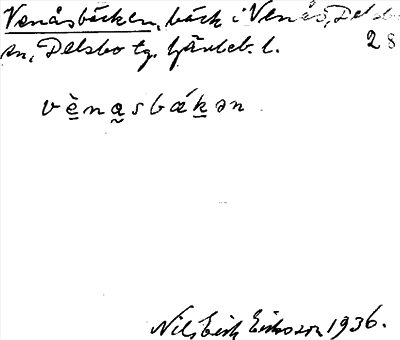 Venåsbäcken, bäck i Venås, Delsbo
sn, Delsbo tg. Gävleb. l. 28
vè̱na̰sbǽḵən
Nils Erik Eriksson 1936.